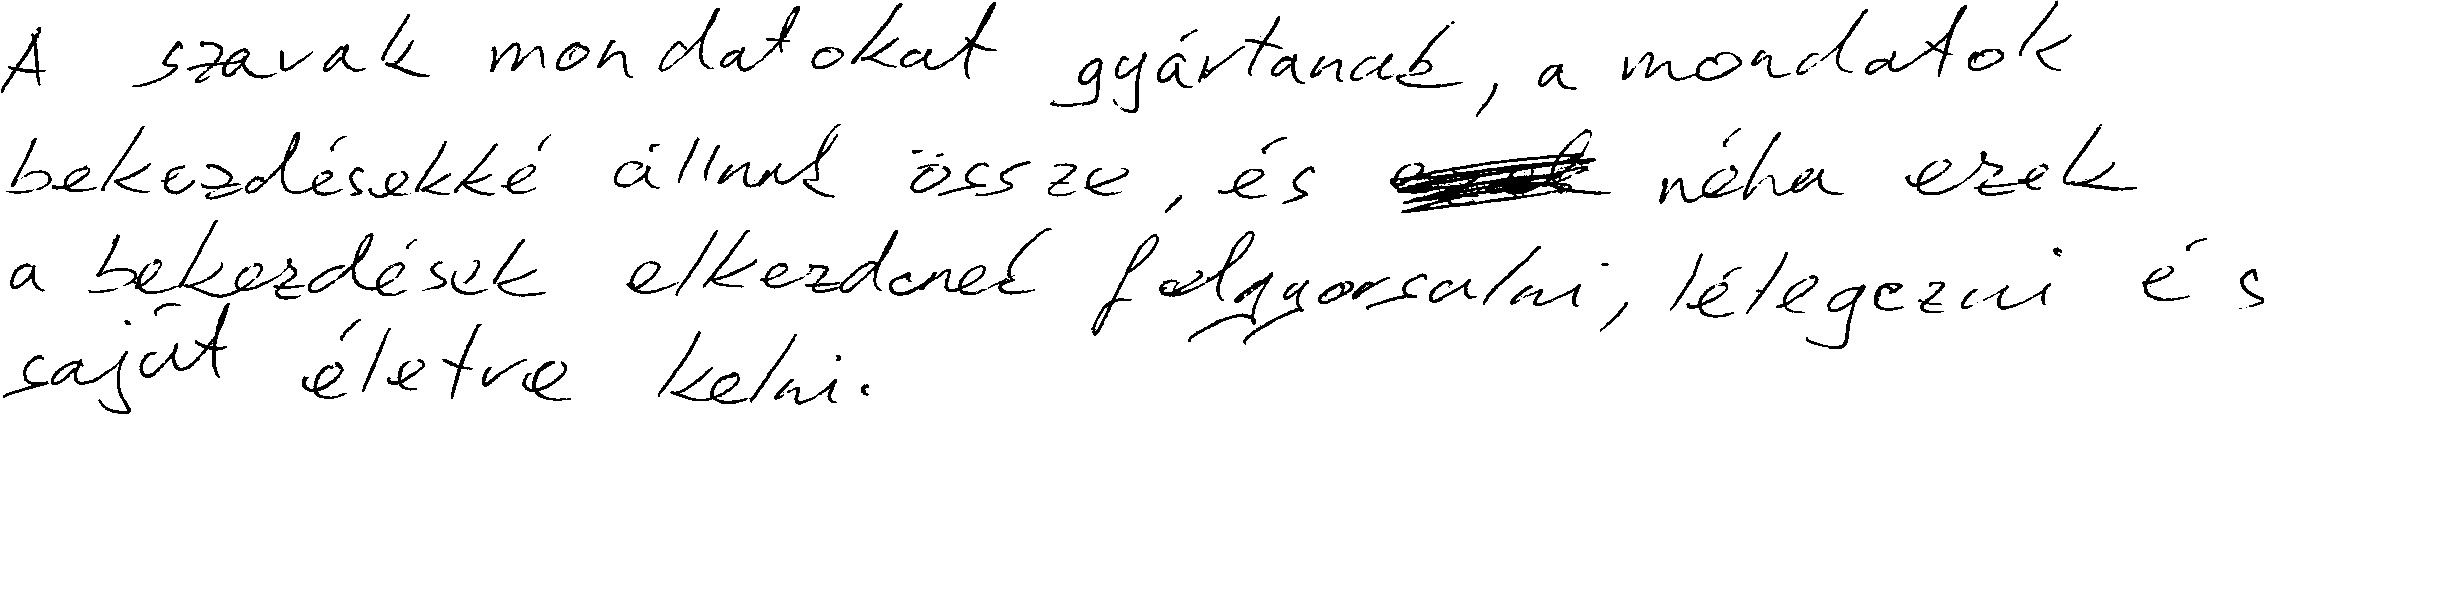 A szavak mondatokat gyártanak, a mondatok
bekezdésekké állnak össze, és néha ezek
a bekezdések elkezdenek felgyorsulni, lélegezni és
saját életre kelni.